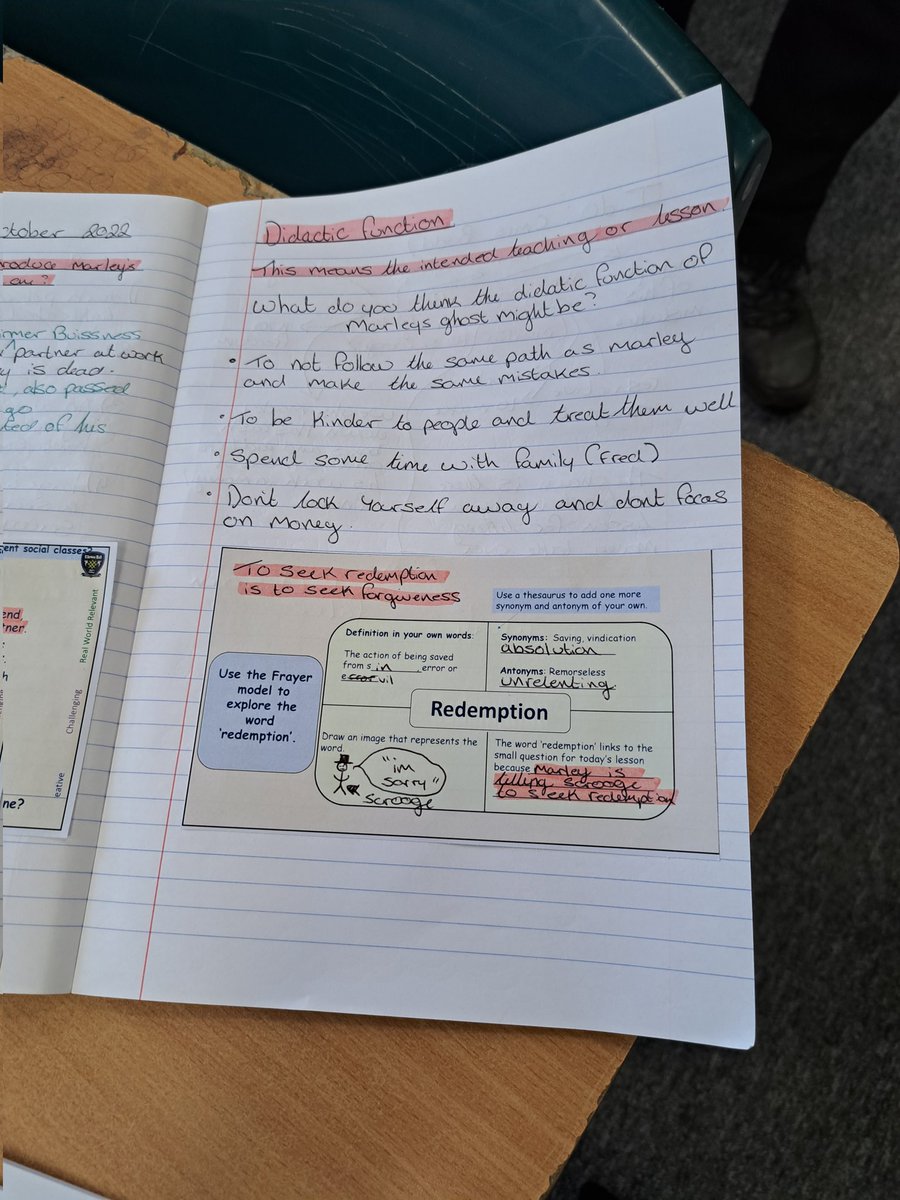 ctober 2022
roduce Marley's
on?
rmer Buissness
partner at work
y is dead.
, also passed
go
ted of his
ent social classes?
end,
tner.
h
Real World Relevant
Challenging
eative
ne?
Didactic function
This means the intended teaching or lesson.
What do you think the didatic function of
Marleys ghost might be?
• To not follow the same path as marley
and make the same mistakes.
• To be kinder to people and treat them well
• Spend some time with family (Fred)
• Dont lock yourself away and dont focas
on money.
To seek redemption
is to seek forgiveness
Use a thesaurus to add one more
synonym and antonym of your own.
Use the Frayer
model to
explore the
word
'redemption'.
Definition in your own words:
The action of being saved
from sin error or
evil
Synonyms: Saving, vindication
absolution
Antonyms: Remorseless
unrelenting.
Redemption
Draw an image that represents the
word.
"im
sorry"
Scrooge
The word 'redemption' links to the
small question for today's lesson
because Marley is
telling scrooge
to seek redemption